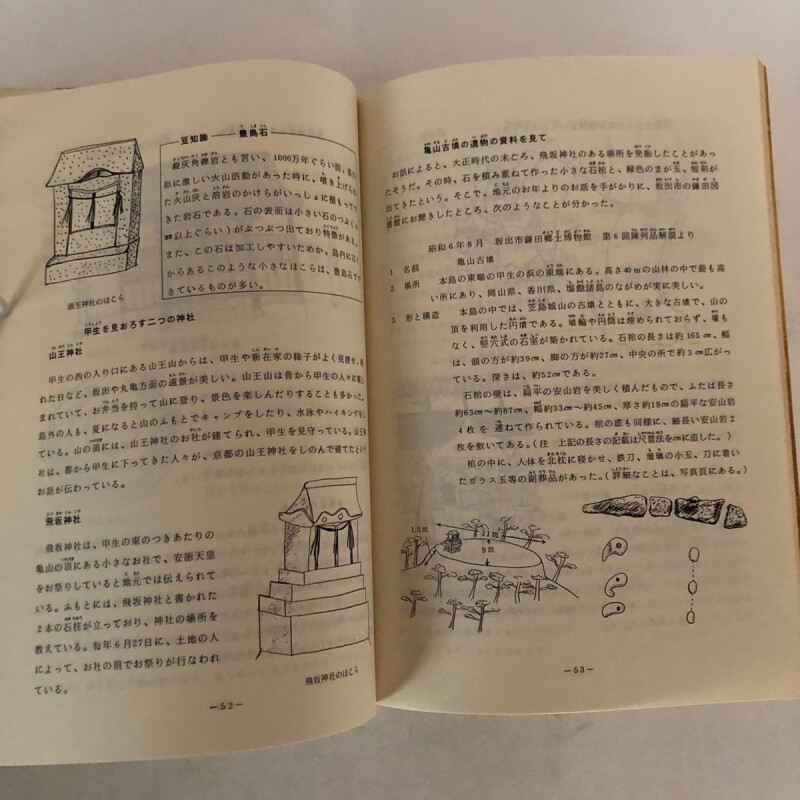 豆知識——豊島石
凝灰角礫岩とも言い、1000万年ぐらい前、
島に激しい火山活動があった時に、噴き上げられ
た火山灰と溶岩のかけらがいっしょに積もって
きた岩石である。石の表面は小さい石のつぶ
以上ぐらい)がぶつぶつ出ており特徴がある。
また、この石は加工しやすいためか、島内に
からあるこのような小さなほこらは、豊島石で
きているものが多い。
玉神社のほこら
甲生を見おろす二つの神社
山王神社
甲生の西の入り口にある山王山からは、甲生や新在家の様子がよく見渡せ、
れた日など、坂出や丸亀方面の遠景が美しい。山王山は昔から甲生の人々に親し
まれていて、お弁当を持って山に登り、景色を楽しんだりすることも多かった。
島外の人も、夏になると山のふもとでキャンプをしたり、水泳やハイキングをし
ている。山の頂には、山王神社のお社が建てられ、甲生を見守っている。山王神
社は、都から甲生に下ってきた人々が、京都の山王神社をしのんで建てたという
お話が伝わっている。
飛坂神社
飛坂神社は、甲生の東のつきあたりの
亀山の頂にある小さなお社で、安徳天皇
をお祭りしていると地元では伝えられて
いる。ふもとには、飛坂神社と書かれた
2本の石柱が立っており、神社の場所を
教えている。毎年6月27日に、土地の人
によって、お社の前でお祭りが行なわれ
ている。
飛坂神社のほこら
—52—
亀山古墳の遺物の資料を見て
お話によると、大正時代の末ごろ、飛坂神社のある場所を発掘したことがあっ
たそうだ。その時、石を積み重ねて作った小さな石棺と、緑色のまが玉、
出てきたという。そこで、地元のお年よりのお話を手がかりに、坂出市の鎌田図
書館にお聞きしたところ、次のようなことが分かった。
昭和6年8月 坂出市鎌田郷土博物館 第6回陳列品解説より
1 名前 亀山古墳
2 場所 本島の東端の甲生の浜の東端にある、高さ40mの山林の中で最も高
い所にあり、岡山県、香川県、塩飽諸島のながめが実に美しい。
3 形と構造 本島の中では、笠島城山の古墳とともに、大きな古墳で、山の
頂を利用した円墳である。埴輪や円筒は埋められておらず、壕も
なく、竪穴式の石室が築かれている。石棺の長さは約165㎝、幅
は、頭の方が約39㎝、脚の方が約27㎝、中央の所で約3㎝広がっ
ている。深さは、約52㎝である。
石棺の壁は、扁平の安山岩を美しく積んだもので、ふたは長さ
約63㎝〜約87㎝、幅約33㎝〜約45㎝、厚さ約18㎝の扁平な安山岩
4枚を連ねて作られている。棺の底も同様に、細長い安山岩2
枚を敷いてある。(注 上記の長さの記載は尺貫法を㎝に直した。)
棺の中に、人体を北枕に寝かせ、鉄刀、の小玉、刀に着い
たガラス玉等の副葬品があった。(詳細なことは、写真頁にある。)
1.5m
11m
9m
—53—